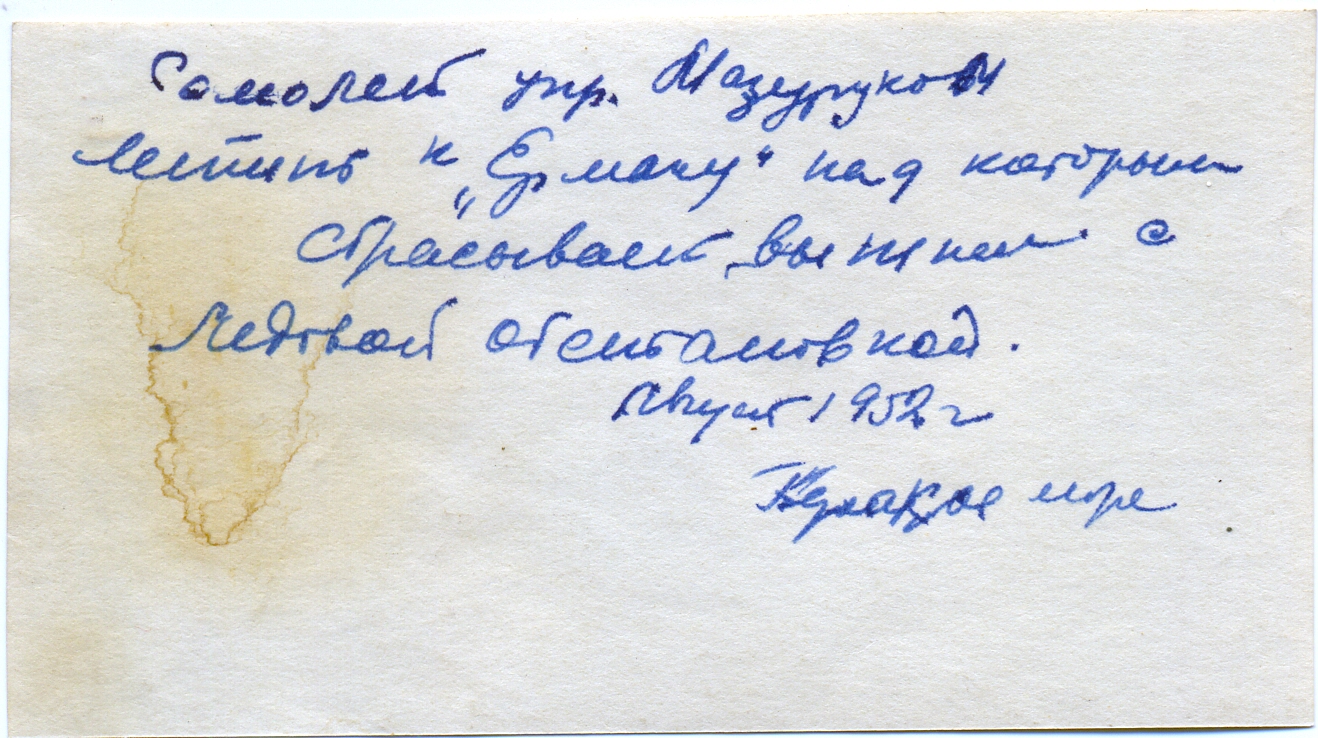 Самолет упр. Мазуруком
летит к „Ермаку" над которым
сбрасывает вымпел с
ледовой обстановкой.
Август 1952 г
море